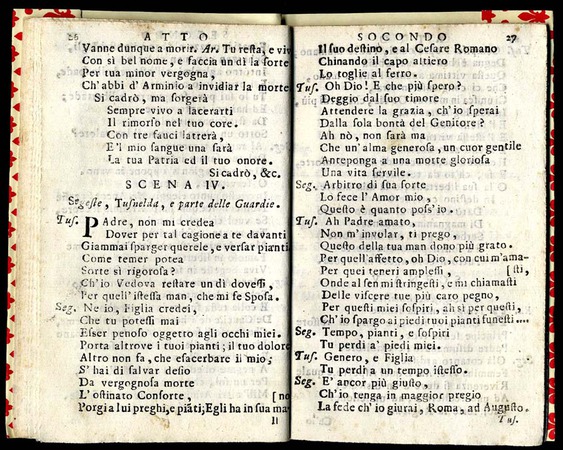 26 ATTO
Vanne dunque a morir. Ar. Tu resta, e viv
Con sì bel nome, e faccia un dì la sorte
Per tua minor vergogna,
Ch'abbi d'Arminio a invidiar la morte
Si cadrò, ma sorgerà
Sempre vivo a lacerarti
Il rimorso nel tuo core.
Con tre fauci latrerà,
E'l mio sangue una sarà
La tua Patria ed il tuo onore.
Si cadrò, &c.
SCENA IV.
Segeste, Tusnelda, e parte delle Guardie.
Tus. PAdre, non mi credea
Dover per tal cagione a te davanti
Giammai sparger querele, e versar pianti
Come temer potea
Sorte sì rigorosa?
Ch'io Vedova restare un dì dovessi,
Per quell'istessa man, che mi fe Sposa.
Seg. Ne io, Figlia credei,
Che tu potessi mai
Esser penoso oggetto agli occhi miei.
Porta altrove i tuoi pianti; il tuo dolore
Altro non fa, che esacerbare il mio;
S' hai di salvar desio
Da vergognosa morte
L' ostinato Consorte, [ no
Porgi a lui preghi, e piàti; Egli ha in sua ma-
Il
SOCONDO 27
Il suo destino, e al Cesare Romano
Chinando il capo altiero
Lo toglie al ferro.
Tus. Oh Dio! E che più spero?
Deggio dal suo timore
Attendere la grazia, ch'io sperai
Dalla sola bontà del Genitore?
Ah nò, non sarà ma
Che un'alma generosa, un cuor gentile
Anteponga a una morte gloriosa
Una vita servile.
Seg. Arbitro di sua sorte
Lo fece l'Amor mio,
Questo è quanto poss'io.
Tus. Ah Padre amato,
Non m'involar, ti prego,
Questo della tua man dono più grato.
Per quell'affetto, oh Dio, con cui m'ama-
Per quei teneri amplessi, [ sti,
Onde al sen mi stringesti, e mi chiamasti
Delle viscere tue più caro pegno,
Per questi miei sospiri, ah sì per questi,
Ch'io spargo ai piedi tuoi pianti funesti....
Seg. Tempo, pianti, e sospiri
Tu perdi a' piedi miei.
Tus. Genero, e Figlia
Tu perdi a un tempo istesso.
Seg. E' ancor più giusto,
Ch'io tenga in maggior pregio
La fede ch'io giurai, Roma, ad Augusto.
Tus.